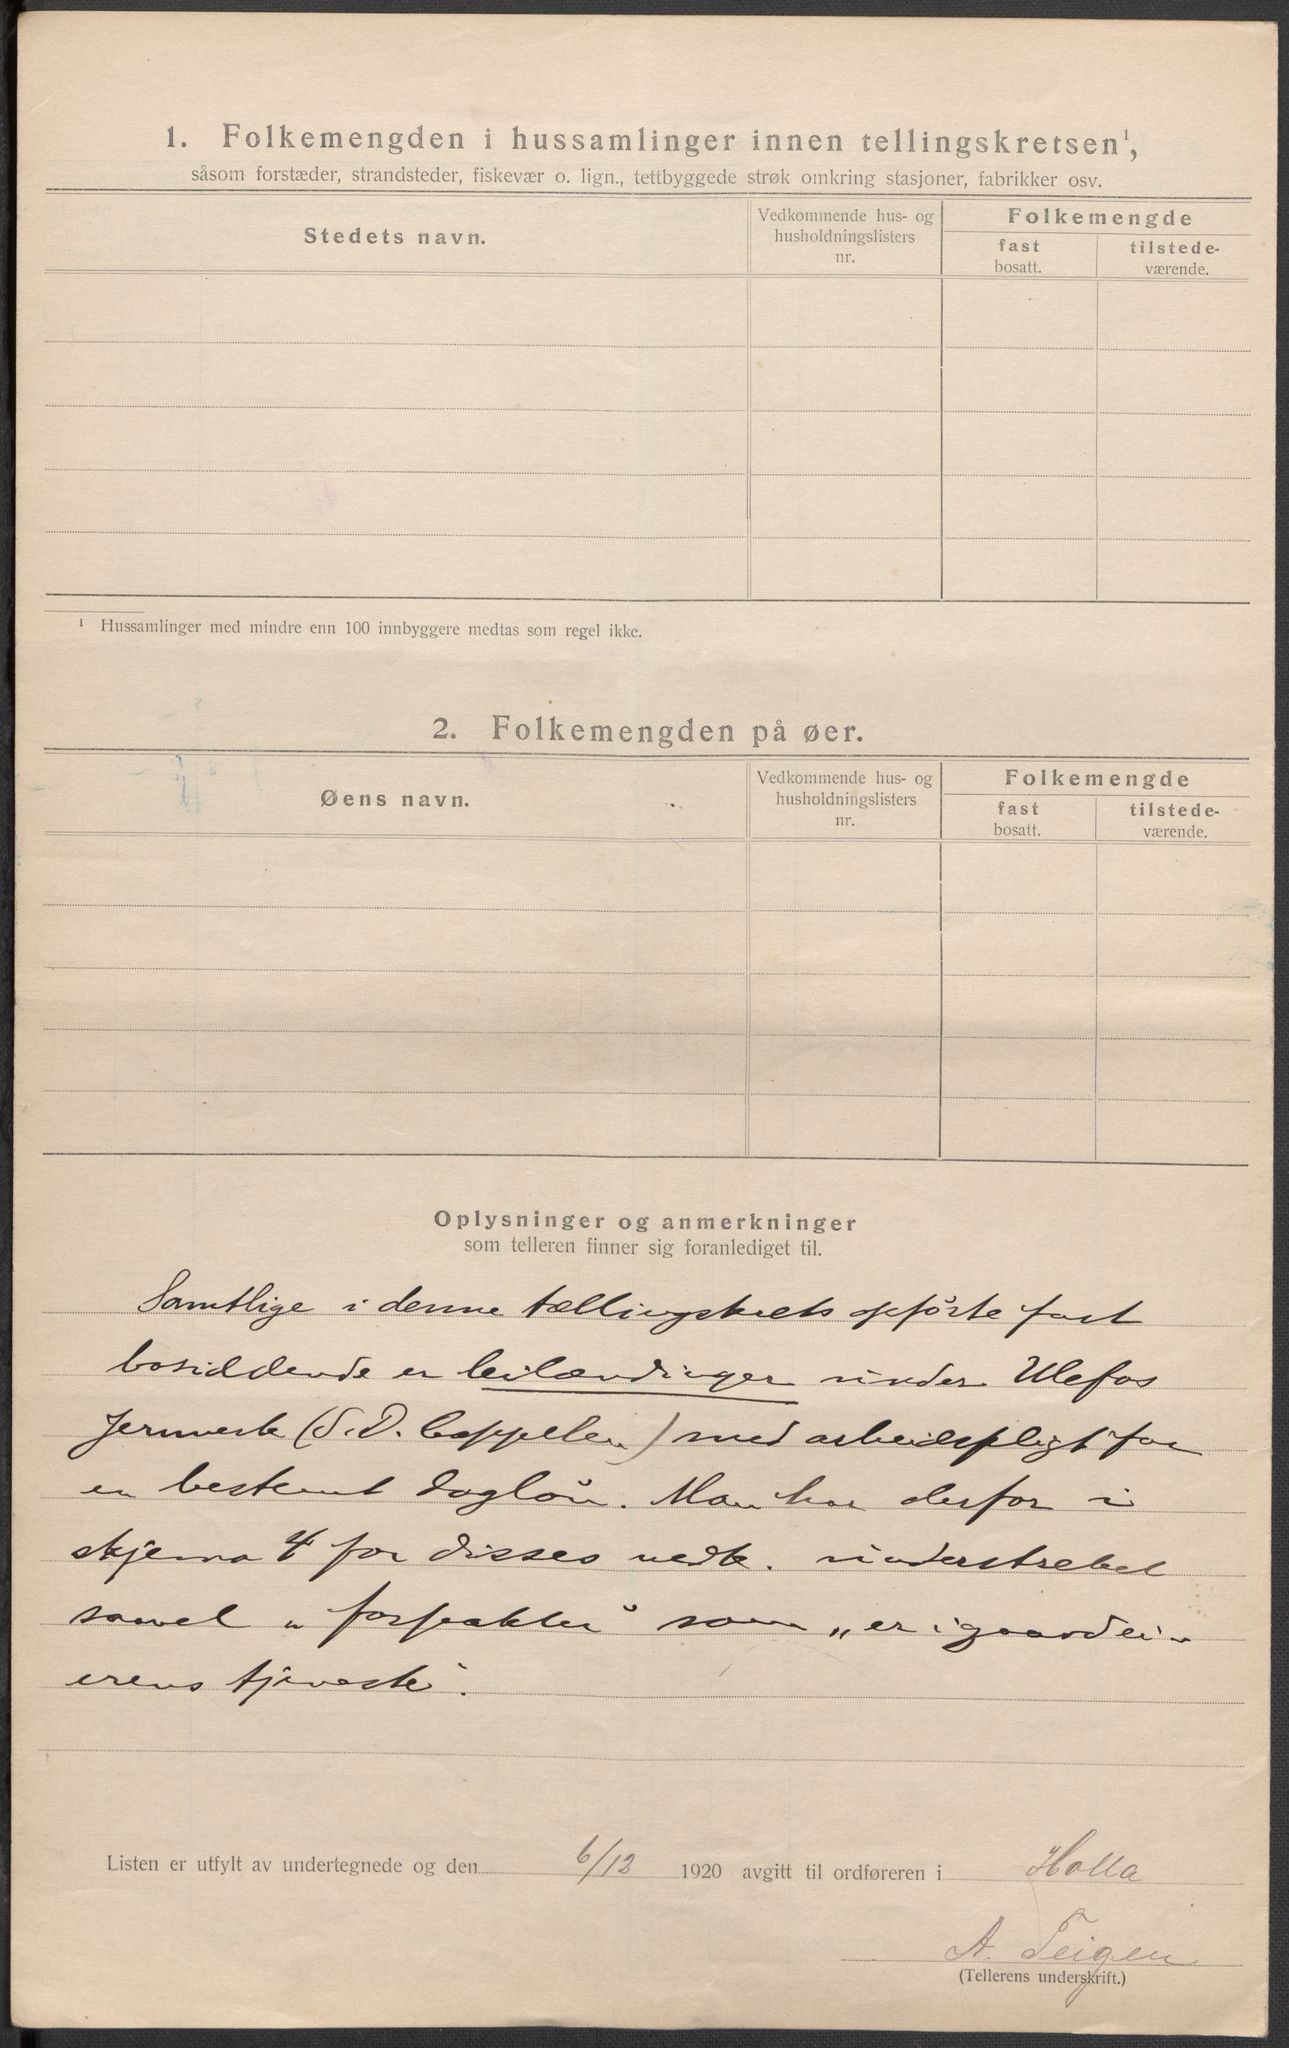 1. Folkemengden i hussamlinger innen tellingskretsen¹,
såsom forstæder, strandsteder, fiskevær o. lign., tettbyggede strøk omkring stasjoner, fabrikker osv.
Stedets navn.
Vedkommende hus- og
husholdningslisters
nr.
Folkemengde
fast
bosatt.
tilstede-
værende.
¹ Hussamlinger med mindre enn 100 innbyggere medtas som regel ikke.
2. Folkemengden på øer.
Øens navn.
Vedkommende hus- og
husholdningslisters
nr.
Folkemengde
fast
bosatt.
tilstede-
værende.
Oplysninger og anmerkninger
som telleren finner sig foranlediget til.
Samtlige i denne tællingskrets opførte fast
bosiddende er leilændinger under Ulefos
Jernverk (S. D. Cappelen) med arbeidspligt for
en bestemt dagløn. Man har derfor i
skjema 4 for disses vedk. understreket
saavel „forpakter" som „er i gaardei-
erens tjeneste".
Listen er utfylt av undertegnede og den 6/12 1920 avgitt til ordføreren i Holla
A. Teigen
(Tellerens underskrift.)